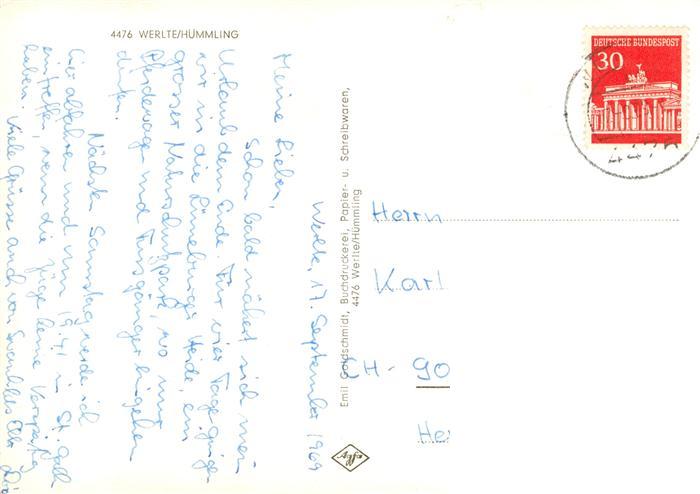 4476 WERLTE/HÜMMLING
Werlte, 17. September 1969
Meine Lieben,
Schon bald nähert sich mein
Urlaub dem Ende. Für vier Tage gingen
wir in die Lüneburger Heide, ein
grosser Naturschutzpark, wo nur
Pferdewagen und Fussgänger eingehen
dürfen.
Nächsten Samstag werde ich
hier abfahren und um 19.41 in St. Gall.
eintreffen, wenn die Züge keine Verspätung
haben. Viele Grüsse auch von
Emil Goldschmidt, Buchdruckerei, Papier- u. Schreibwaren,
4476 Werlte/Hümmling
Agfa
DEUTSCHE BUNDESPOST
30
Herrn
Karl
CH - 90
He